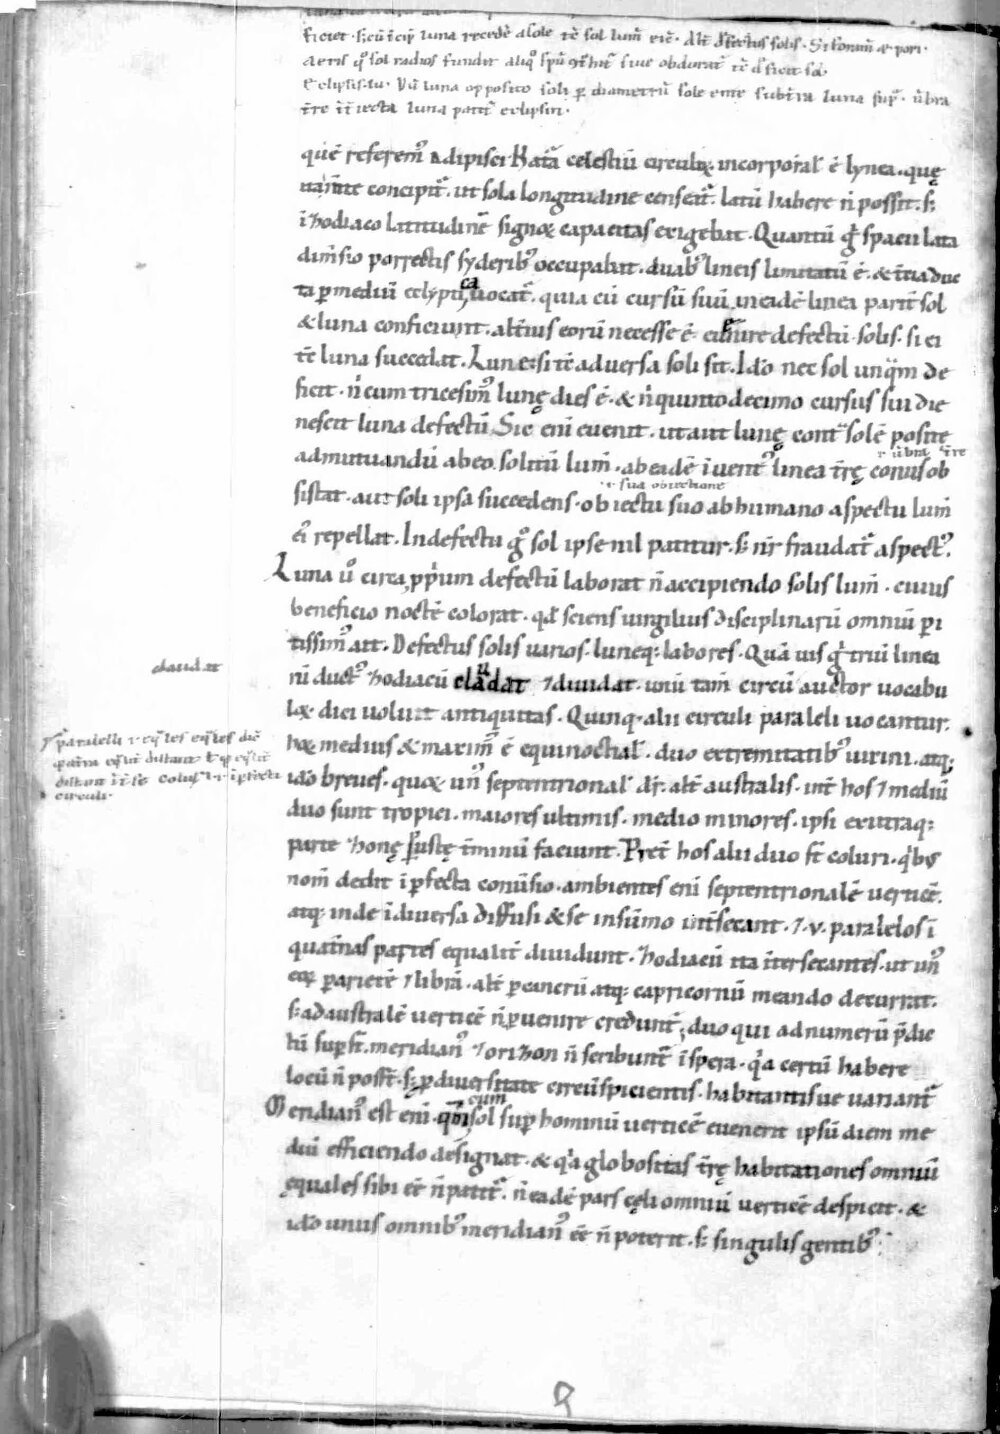 ficiet · luna recedē a sole tē sol lum̄ · defectus solis ·
aeris q° sol radios fundit aliq° sive obdurat tē deficit sol
Eclipsis · Dū luna opposito soli p̄ diametrū sole luna sup̄ · ūbra
t̄re iecta luna patit̄ eclipsin ·
quē referem⁹ adipisci Nat̄a celestiū circulox̨ incorporal̄ ē lynea · quę
ita mente concipit̄ · ut sola longitudine censeat̄ · latū habere n̄ possit · s꞉
ī zodiaco latitudinē signox̨ capacitas exigebat · Quantū g̊ spacii lata
dim̄sio porrectis syderib⁹ occupabat · duab⁹ lineis limitatū ē · & t̄cia duc
ta p̄ mediū eclyptica uocat̄ · quia cū cursū suū in eadē linea parit̄ sol
& luna conficiunt · alt̄ius eorū necesse ē euenire defectū · solis · si ei
tē luna succedat · Lune · si tē aduersa soli sit · Idō nec sol unq̄m de
ficit · n̄ cum tricesim⁹ lunę dies ē · & n̄ quinto decimo cursus sui die
nescit luna defectū · Sic enī euenit · ut aut lunę cont̄ solē positę
ūbra t̄re
ad mutuandū ab eo solitū lum̄ · ab eadē īuent⁹ linea t̄rę conus ob
· sua obiectione
sistat · aut soli ipsa succedens · obiectu suo ab humano aspectu lum̄
ei⁹ repellat · In defectu g̊ sol ipse nil patitur · s꞉ nr̄ fraudat̄ aspect⁹ ·
Luna u° circa pp̄ium defectū laborat n̄ accipiendo solis lum̄ · cuius
beneficio noctē colorat · qd̄ sciens uirgilius disciplinarū omniū p̄i
tissim⁹ ait · Defectus solis uarios · luneq꞉ labores · Quā uis g̊ triū linea
claudat
rū duct⁹ zodiacū cladat ⁊ diuidat · unū tam̄ circū auctor uocabu
lox̨ dici uoluit antiquitas · Quinq꞉ alii circuli paraleli uocantur ·
parallelli
distant
circuli ·
hox̨ medius & maxim⁹ ē equinoctial̄ · duo extremitatib⁹ uicini · atq꞉
idō breues · quox̨ un⁹ septentrional̄ dr̄ · alt̄ australis · int̄ hos ⁊ mediū
duo sunt tropici · maiores ultimis · medio minores · ipsi ex utraq꞉
parte zonę p̄ustę t̄minū faciunt · Pret̄ hos alii duo st̄ coluri · q̄b⁹
nom̄ dedit īp̄fecta conūsio · ambientes enī septentrionalē uerticē ·
atq꞉ inde ī diuersa diffusi & se in sūmo int̄secant · ⁊ · v · paralelos ī
quat̄nas partes equalit̄ diuidunt · zodiacū ita īt̄secantes · ut un⁹
eox̨ p̄ arietē ⁊ librā · alt̄ p̄ cancrū atq꞉ capricornū meando decurrat ·
s꞉ ad australē uerticē n̄ p̄uenire creduntr̄ · duo qui ad numerū p̄dic
tū sup̄st̄ · meridian⁹ ⁊ orizon n̄ scribuntr̄ ī spera · q̄a certū habere
locū n̄ posst̄ · s꞉ p̄ diuersitate circūspicientis · habitantisue uariantr̄
cum
Meridian⁹ est enī · qm̄ sol sup̄ hominū uerticē euenerit ipsū diem me
diū efficiendo designat · & q̄a globositas t̄rę habitationes omniū
ęquales sibi ēē n̄ patit̄ · n̄ eadē pars cęli omniū uerticē despicit · &
idō unus omnib⁹ meridian⁹ ēē n̄ poterit · s꞉ singulis gentib⁹